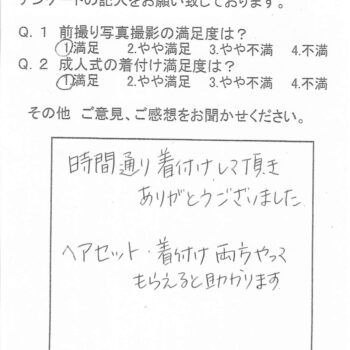 アンケートの記入をお願い致しております。
Q.1 前撮り写真撮影の満足度は？
①満足 2.やや満足 3.やや不満 4.不満
Q.2 成人式の着付け満足度は？
①満足 2.やや満足 3.やや不満 4.不満
その他 ご意見、ご感想をお聞かせください。
時間通り着付けして頂き
ありがとうございました
ヘアセット・着付け両方やって
もらえると助かります